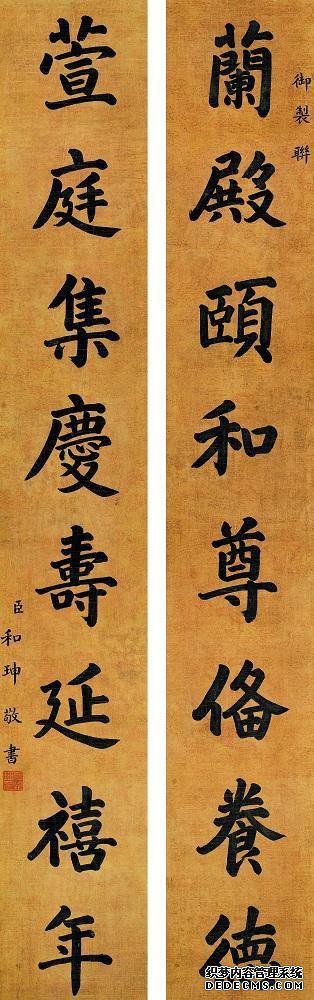 御製聯
蘭殿頤和尊備養德
萱庭集慶壽延禧年
臣和珅敬書
织梦内容管理系统
DEDECMS.COM